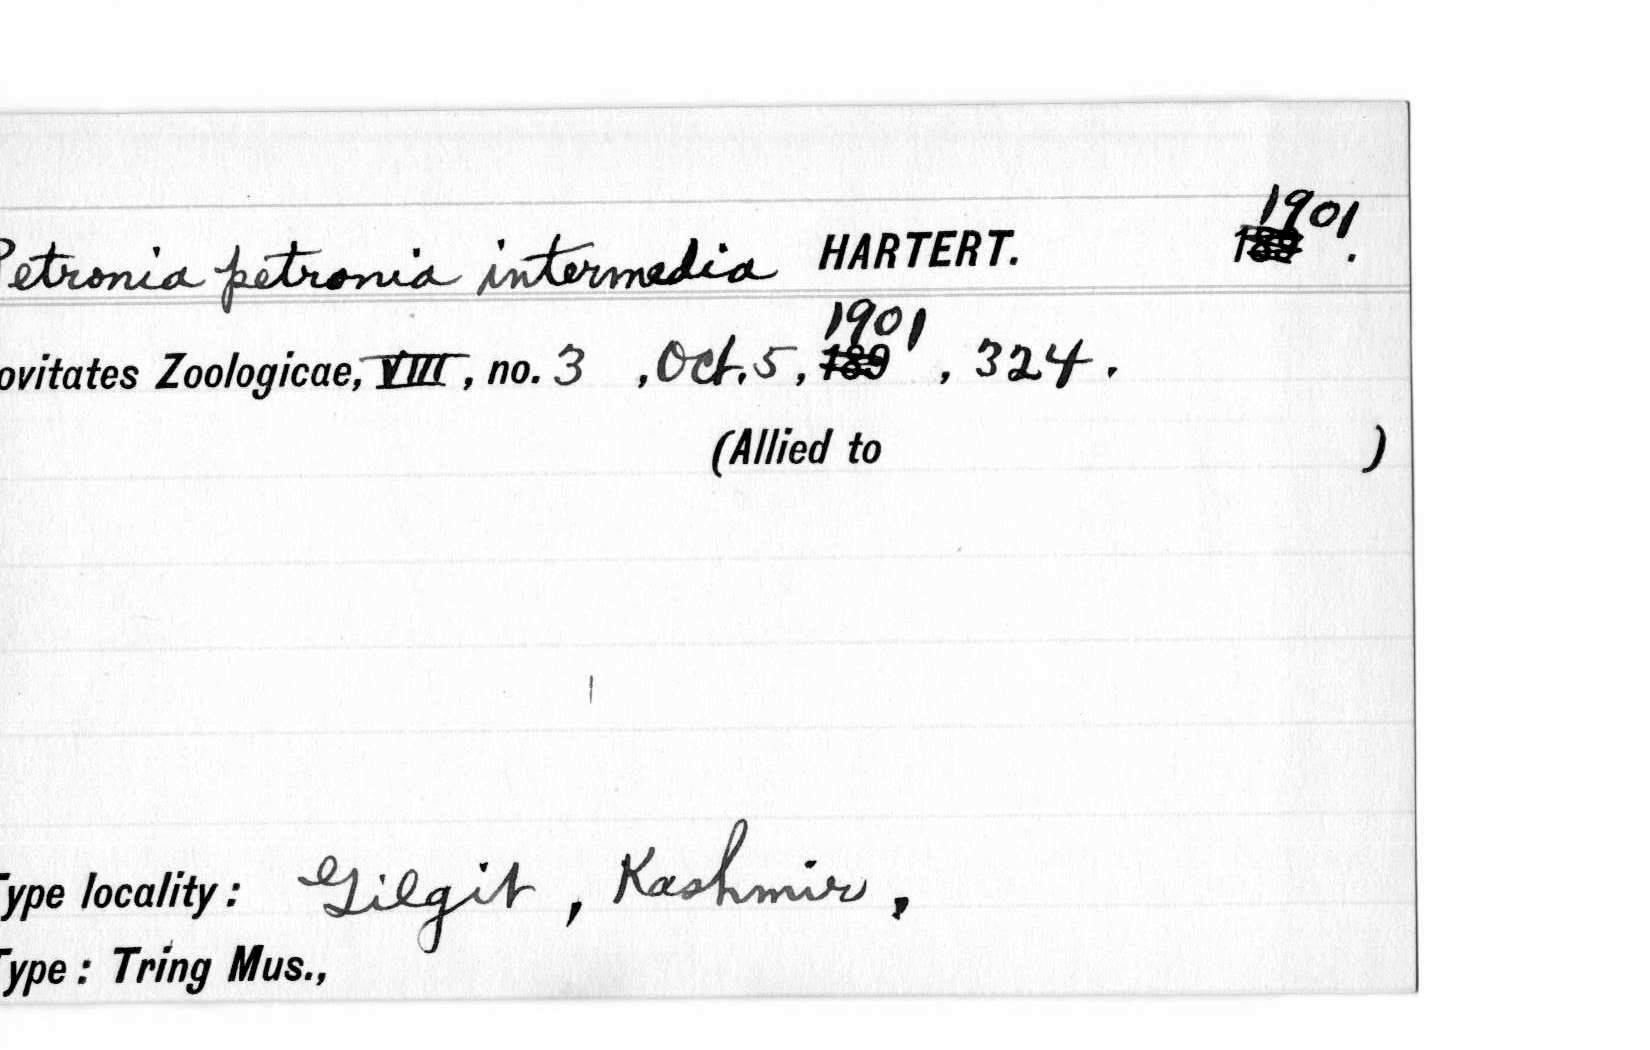 Petronia petronia intermedia HARTERT. 1901 189 .
ovitates Zoologicae, VIII, no. 3 , Oct. 5, 1901 189 , 324.
(Allied to )
Type locality: Gilgit, Kashmir,
Type: Tring Mus.,